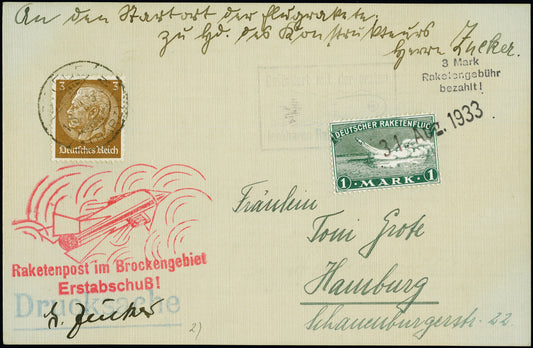 An den Startort der Flugrakete.
zu Hd. des Konstrukteurs
Herrn Zucker.
3 Mark
Raketengebühr
bezahlt!
3
3
Deutsches Reich
DEUTSCHER RAKETENFLUG
1 MARK 1
31. Aug. 1933
Raketenpost im Brockengebiet
Erstabschuß!
Drucksache
G. Zucker
2)
Fräulein
Toni Grote
Hamburg
Schauenburgerstr. 22